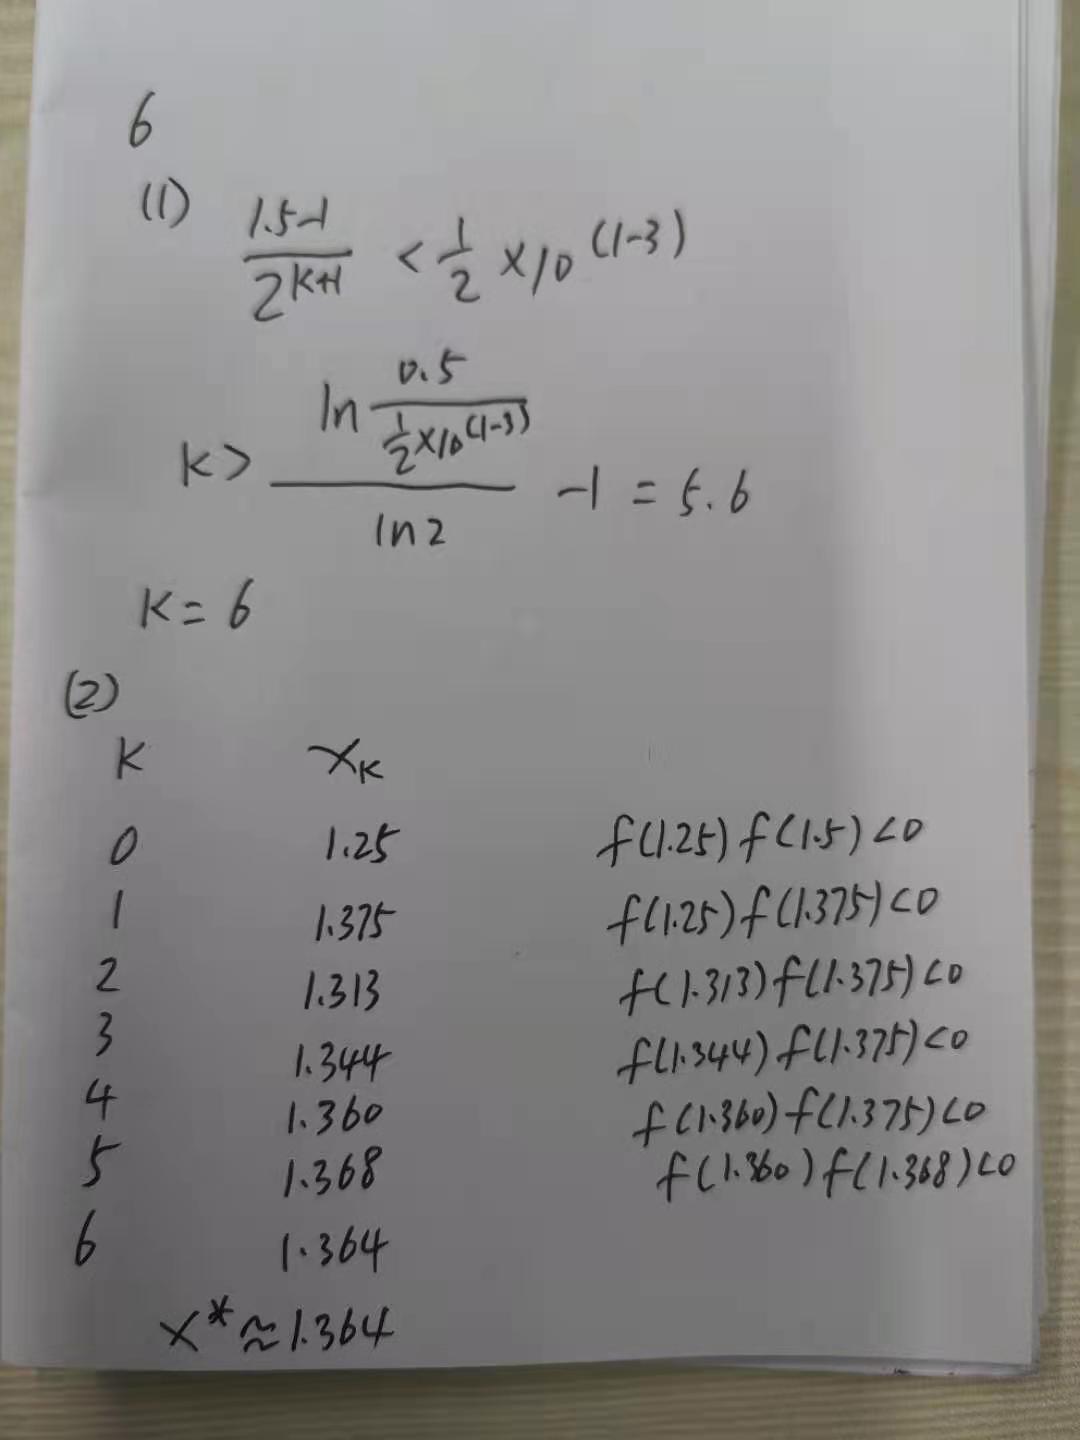 6
(1) (1.5-1)/2^(k+1) < 1/2 × 10^(1-3)
k > ln(0.5/(1/2 × 10^(1-3)))/ln2 - 1 = 5.6
k = 6
(2)
k x_k
0 1.25 f(1.25) f(1.5) < 0
1 1.375 f(1.25) f(1.375) < 0
2 1.313 f(1.313) f(1.375) < 0
3 1.344 f(1.344) f(1.375) < 0
4 1.360 f(1.360) f(1.375) < 0
5 1.368 f(1.360) f(1.368) < 0
6 1.364
x* ≈ 1.364